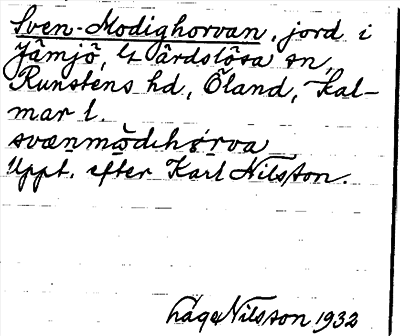 Sven-Modighorvan, jord i
Jämjö, Gärdslösa sn,
Runstens hd, Öland, Kal-
mar l.
svænmōdihørva
Uppt. efter Karl Nilsson.
Låge Nilsson 1932